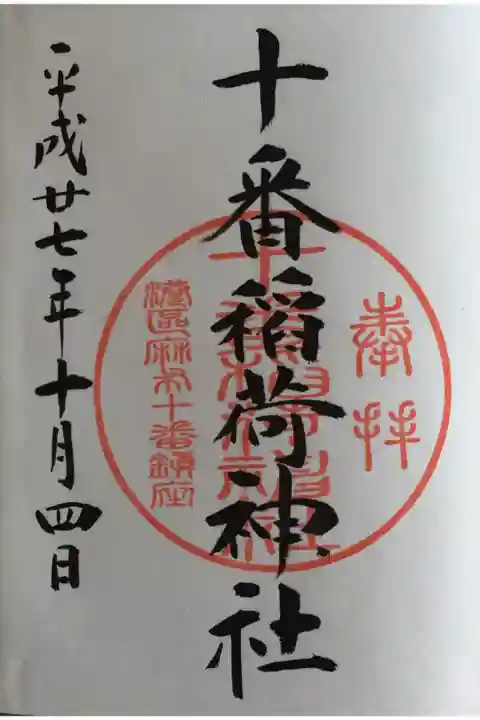 奉拝
十番稲荷神社
十番稲荷神社
港区麻布十番鎮座
平成廿七年十月四日